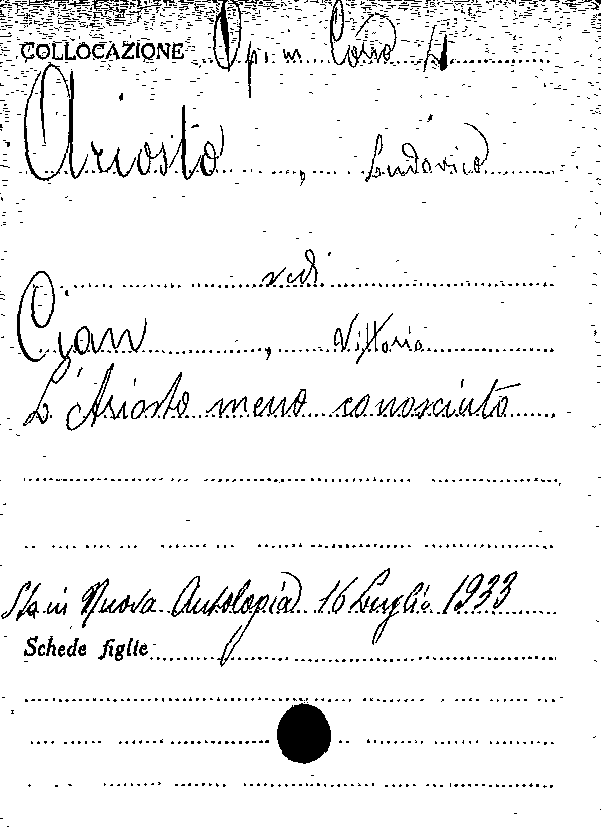 COLLOCAZIONE Op. m. Cors
Ariosto, Ludovico
vedi
Cian, Vittorio
L'Ariosto meno conosciuto
Sta in Nuova Antologia 16 Luglio 1933
Schede figlie